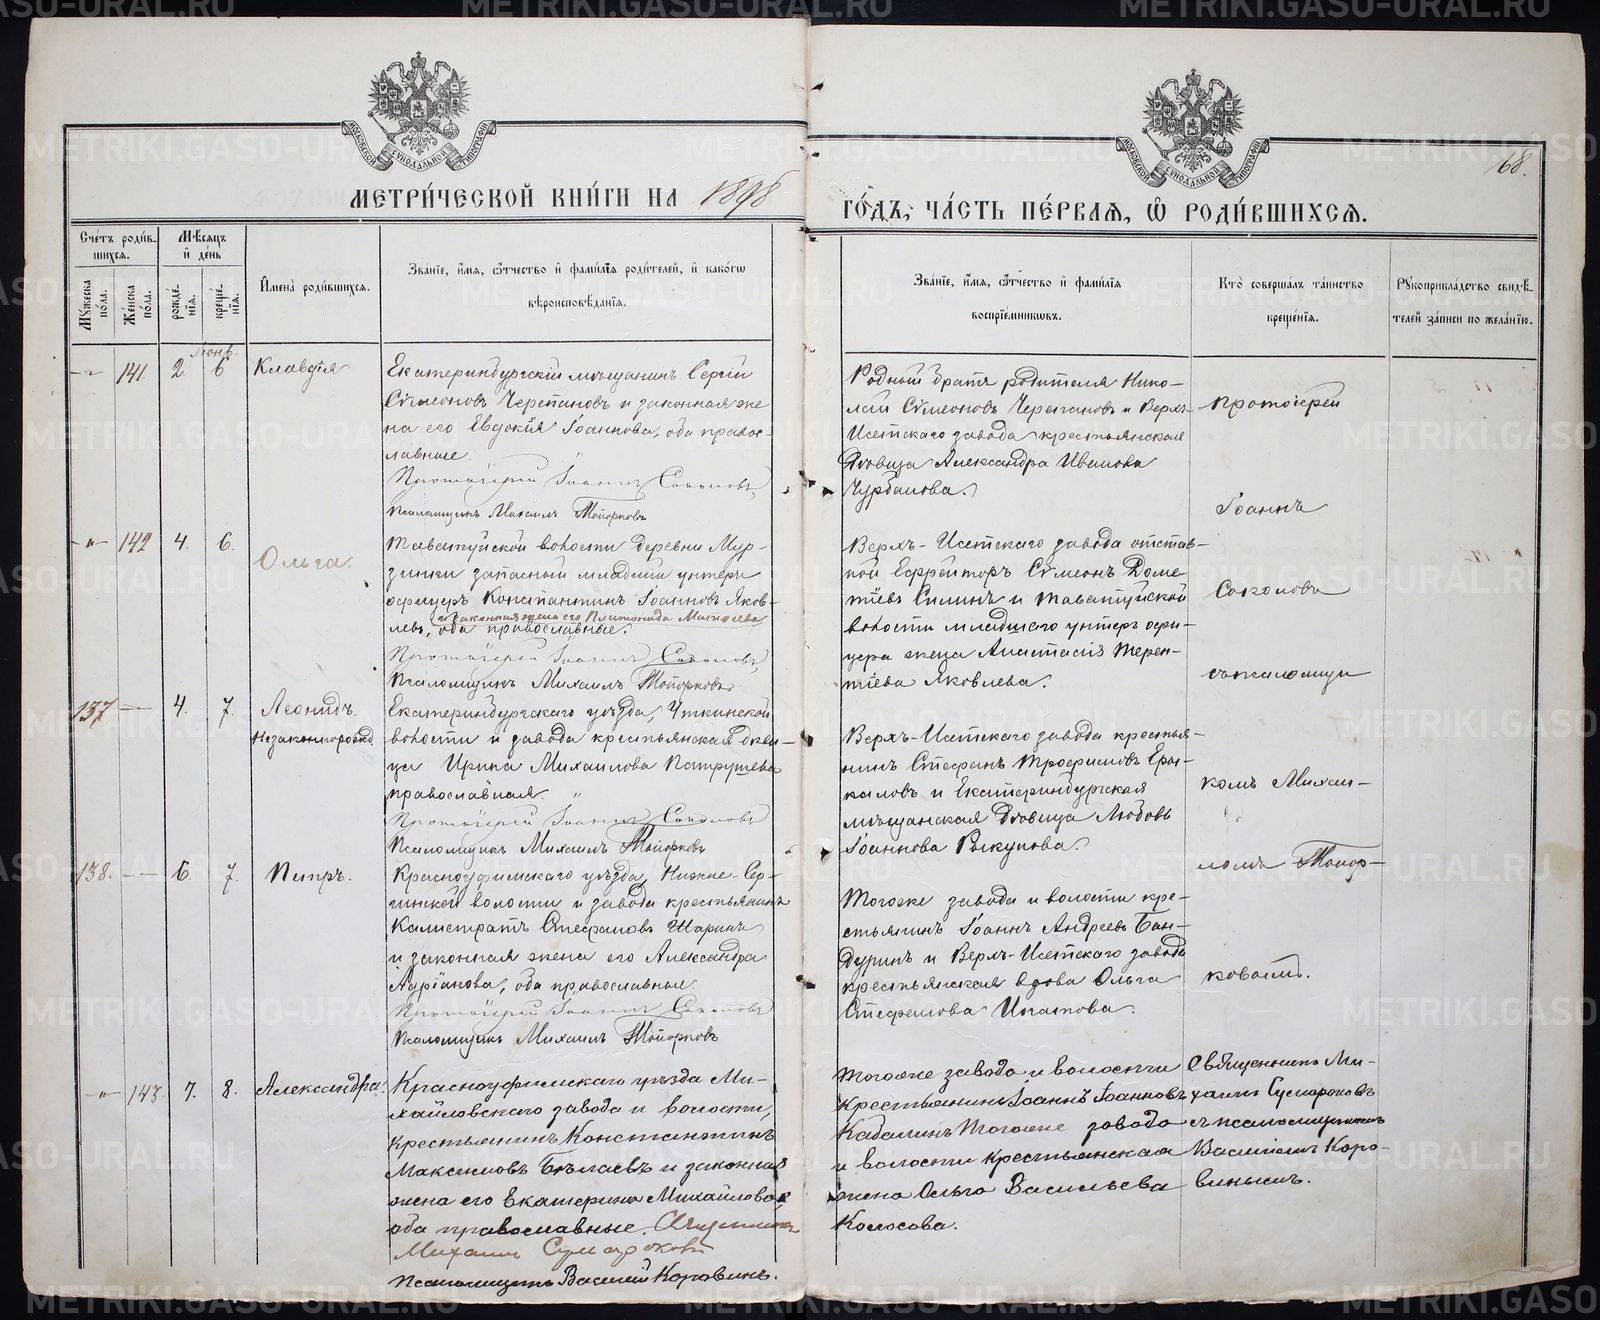 МЕТРИ́ЧЕСКОЙ КНИ́ГИ НА 1898
ГО́ДЪ, ЧА́СТЬ ПЕ́РВАЯ, Ѡ РОДИ́ВШИХСЯ.
168.
МОСКОВСКОЙ СѴНОДАЛЬНОЙ ТИПОГРАФІИ
МОСКОВСКОЙ СѴНОДАЛЬНОЙ ТИПОГРАФІИ
Сче́тъ роди́в-
шихся.
Му́жеска по́ла.
Же́нска по́ла.
Мѣ́сяцъ
и де́нь
рожде́-
нія.
креще́-
нія.
Имена̀ роди́вшихся.
Зва́ніе, и́мя, ѻ́тчество и фами́лія роди́телей, и како́гѡ
вѣроисповѣ́данія.
Зва́ніе, и́мя, ѻ́тчество и фами́лія
воспріе́мникѡвъ.
Кто̀ соверша́лъ та́инство
креще́нія.
Рукоприкла́дство свидѣ́-
телей за́писи по жела́нію.
141. 2. 6 Клавдія
Екатеринбургскій мѣщанинъ Сергій
Сѵмеоновъ Черепановъ и законная же
на его Евдокія Іоаннова, оба правос-
лавные.
Протоіерей Іоаннъ Соколовъ,
Псаломщикъ Михаилъ Топорковъ
Родный братъ родителя Нико-
лай Сѵмеоновъ Черепановъ и Верхъ-
Исетскаго завода крестьянская
дѣвица Александра Иванова
Чурбанова.
Протоіерей
Іоаннъ
-"- 142 4. 6. Ольга.
Таватуйской волости деревни Мур-
зинки запасный младшій унтеръ
офицеръ Константинъ Іоанновъ Яков-
и законная жена его Платонида Матѳеева
левъ, оба православные.
Протоіерей Іоаннъ Соколовъ,
Псаломщикъ Михаилъ Топорковъ
Верхъ-Исетскаго завода отстав-
ной Ефрейторъ Сѵмеонъ Доме-
тіевъ Силинъ и Таватуйской
волости младшаго унтеръ офи-
цера жена Анастасія Терен-
тіева Яковлева.
Соколовъ
съ псаломщи
137 4. 7. Леонидъ.
Незаконнорожд.
Екатеринбургскаго уѣзда, Уткинской
волости и завода крестьянская дѣви-
ца Ирина Михаилова Патрушева
православная.
Протоіерей Іоаннъ Соколовъ
Псаломщикъ Михаилъ Топорковъ
Верхъ-Исетскаго завода крестья-
нинъ Стефанъ Трофимовъ
и Екатеринбургская
мѣщанская дѣвица Любовь
Іоаннова Рыкунова.
комъ Михаи-
ломъ Топор-
138. 6. 7. Петръ.
Красноуфимскаго уѣзда, Нижне-Сер-
гинской волости и завода крестьянинъ
Калистратъ Стефановъ Шаринъ
и законная жена его Александра
Адріанова, оба православные.
Протоіерей Іоаннъ Соколовъ
Псаломщикъ Михаилъ Топорковъ
Тогоже завода и волости кре-
стьянинъ Іоаннъ Андреевъ Бан-
дуринъ и Верхъ-Исетскаго завода
крестьянская вдова Ольга
Стефанова Игнатова.
ковымъ.
-"- 143. 7. 8. Александра.
Красноуфимскаго уѣзда Ми-
хайловскаго завода и волости,
крестьянинъ Константинъ
Максимовъ Бѣлаевъ и законная
жена его Екатерина Михайлова,
оба православные. Священникъ
Михаилъ Сумароковъ
Псаломщикъ Василій Коровинъ.
Тогоже завода и волости
Крестьянинъ Іоаннъ Іоанновъ
Кабалинъ Тогоже завода
и волости крестьянская
жена Ольга Васильева
Колосова.
Священникъ Ми-
хаилъ Сумароковъ
съ псаломщикомъ
Василіемъ Коро-
винымъ.
METRIKI.GASO-URAL.RU